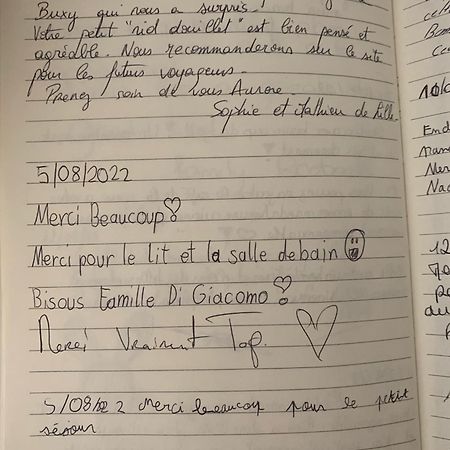 Buxy qui nous a surpris !
Votre petit "nid douillet" est bien pensé et
agréable. Nous recommanderons sur le site
pour les futurs voyageurs.
Prenez soin de vous Aurore.
Sophie et Mathieu de Lille.
5/08/2022
Merci Beaucoup!
Merci pour le lit et la salle de bain
Bisous Famille Di Giacomo!
Merci Vraiment Top.
5/08/22 2 Merci beaucoup pour le petit
séjour